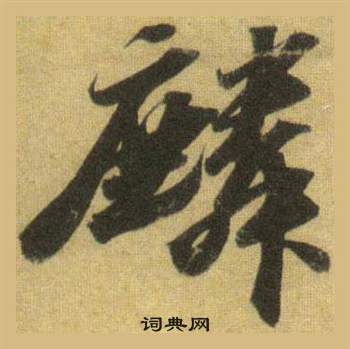 麟
词典网